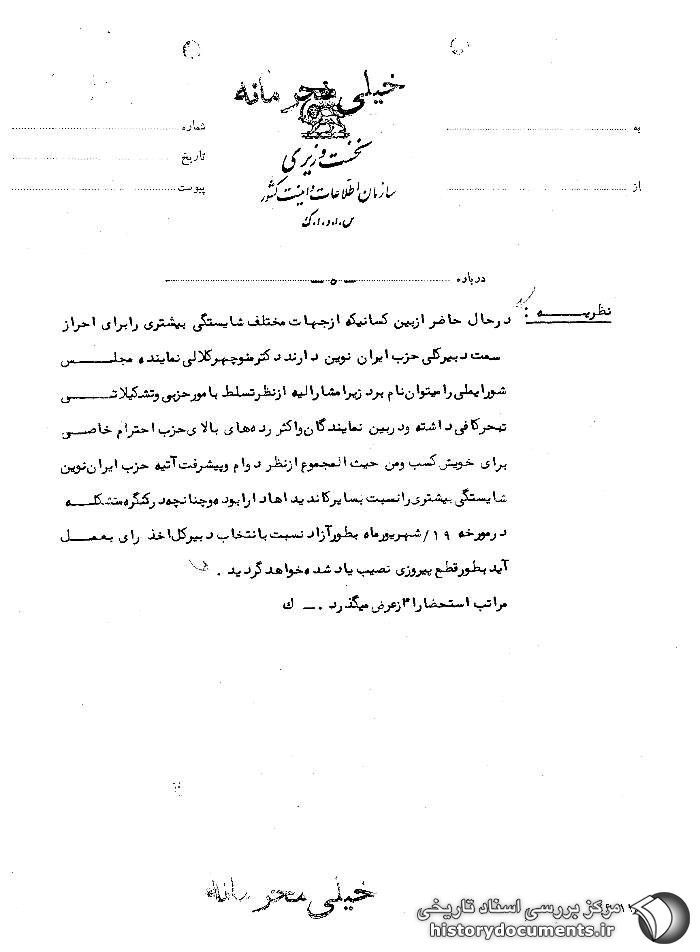 خیلی محرمانه
نخست وزیری
سازمان اطلاعات و امنیت کشور
س.ا.و.ا.ک
به
از
شماره
تاریخ
پیوست
درباره ـ ۵ ـ
نظریه : درحال حاضر ازبین کسانیکه ازجهات مختلف شایستگی بیشتری رابرای احراز
سمت دبیرکلی حزب ایران نوین دارند دکترمنوچهرکلالی نماینده مجلس
شورایملی رامیتوان نام برد زیرا مشارالیه ازنظرتسلط بامورحزبی وتشکیلاتی
تبحرکافی داشته ودربین نمایندگان واکثر رده های بالای حزب احترام خاصی
برای خویش کسب ومن حیث المجموع ازنظر دوام وپیشرفت آتیه حزب ایران نوین
شایستگی بیشتری رانسبت بسایرکاندیداها دارابوده وچنانچه درکنگره متشکله
درمورخه ۱۹/شهریورماه بطورآزاد نسبت بانتخاب دبیرکل اخذ رای بعمل
آید بطورقطع پیروزی نصیب یاد شده خواهد گردید .
مراتب استحضارا" ازعرض میگذرد . ـ ک
خیلی محرمانه
مرکز بررسی اسناد تاریخی
historydocuments.ir